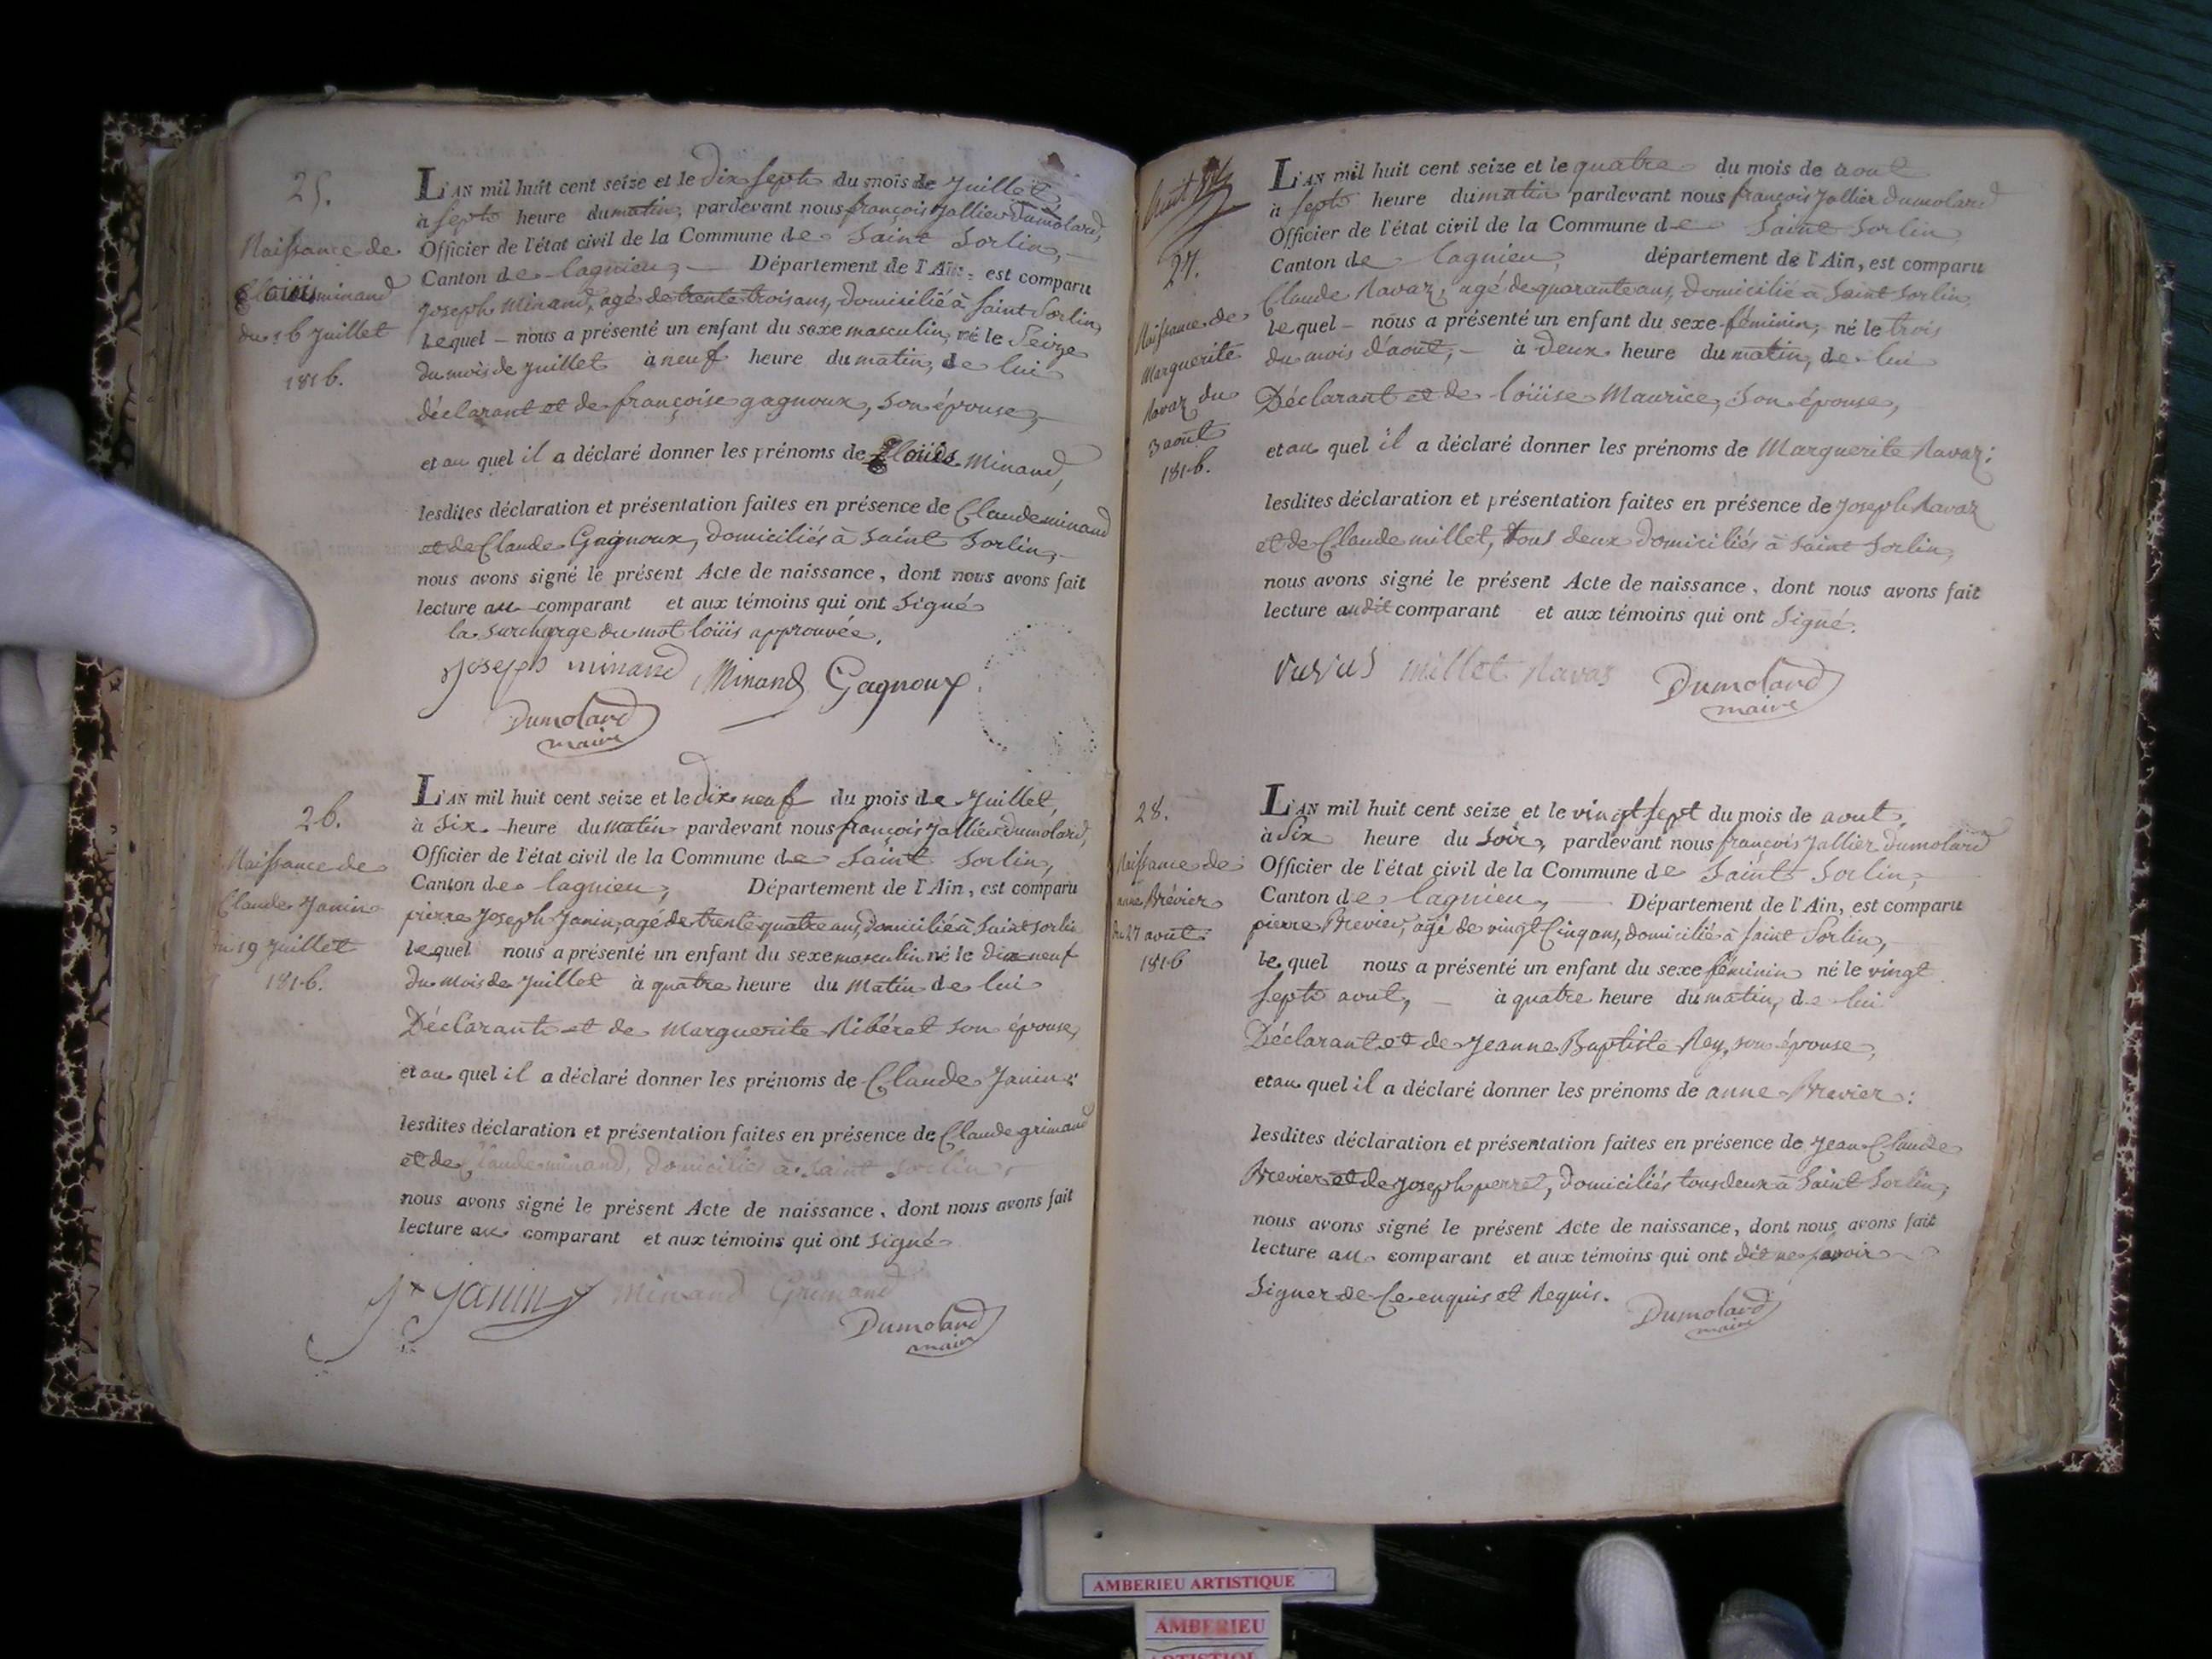 25.
Naissance de
Louis minand
du 16 Juillet
1816.
L'AN mil huit cent seize et le dix sept du mois de Juillet,
à sept heure du matin, pardevant nous françois Jallier Dumolard,
Officier de l'état civil de la Commune de Saint Sorlin,
Canton de lagnieu, Département de l'Ain, est comparu
joseph Minand, agé de trente trois ans, domicilié à Saint Sorlin,
Lequel nous a présenté un enfant du sexe masculin, né le Seize
du mois de juillet à neuf heure du matin, de lui
déclarant et de françoise gagnoux, son épouse,
et au quel il a déclaré donner les prénoms de Louis Minand,
lesdites déclaration et présentation faites en présence de Claude minand
et de Claude Gagnoux, domiciliés à Saint Sorlin,
nous avons signé le présent Acte de naissance, dont nous avons fait
lecture au comparant et aux témoins qui ont Signé
la surcharge du mot loüis approuvée.
joseph minand Minand Gagnoux
Dumolard
maire
26.
Naissance de
Claude Janin
du 19 Juillet
1816.
L'AN mil huit cent seize et le dix neuf du mois de Juillet,
à Six heure du Matin pardevant nous françois Jallier dumolard,
Officier de l'état civil de la Commune de Saint Sorlin,
Canton de lagnieu, Département de l'Ain, est comparu
pierre Joseph Janin, agé de trente quatre ans, domicilié à Saint Sorlin
Lequel nous a présenté un enfant du sexe masculin né le dix neuf
du Mois de Juillet à quatre heure du Matin de lui
Déclarant et de Marguerite Ribéret son épouse,
et au quel il a déclaré donner les prénoms de Claude Janin:
lesdites déclaration et présentation faites en présence de Claude grimand
et de Claude minand, domiciliés à Saint Sorlin,
nous avons signé le présent Acte de naissance, dont nous avons fait
lecture au comparant et aux témoins qui ont Signé
Janin Minand Grimand
Dumolard
maire
27.
Naissance de
Marguerite
Ravaz du
3 août
1816.
L'AN mil huit cent seize et le quatre du mois de aout
à sept heure du matin pardevant nous françois Jallier dumolard
Officier de l'état civil de la Commune de Saint Sorlin
Canton de lagnieu, département de l'Ain, est comparu
Claude Ravaz, agé de quarante ans, domicilié à Saint Sorlin,
Lequel nous a présenté un enfant du sexe féminin, né le trois
du mois d'aout, à deux heure du matin, de lui
Déclarant et de loüise Maurice, Son épouse,
et au quel il a déclaré donner les prénoms de Marguerite Ravaz:
lesdites déclaration et présentation faites en présence de joseph Ravaz
et de Claude millet, tous deux domiciliés à Saint Sorlin,
nous avons signé le présent Acte de naissance, dont nous avons fait
lecture audit comparant et aux témoins qui ont Signé.
millet Ravaz Dumolard
maire
28.
Naissance de
anne Brévier
du 27 août
1816
L'AN mil huit cent seize et le vingt sept du mois de aout,
à Six heure du Soir, pardevant nous françois Jallier dumolard
Officier de l'état civil de la Commune de Saint Sorlin,
Canton de lagnieu, Département de l'Ain, est comparu
pierre Brevier, agé de vingt Cinq ans, domicilié à Saint Sorlin,
Lequel nous a présenté un enfant du sexe féminin né le vingt
sept aout, à quatre heure du matin, de lui
Déclarant et de Jeanne Baptiste Rey, son épouse,
et au quel il a déclaré donner les prénoms de anne Brevier:
lesdites déclaration et présentation faites en présence de Jean Claude
Brevier et de joseph perret, domiciliés tous deux à Saint Sorlin,
nous avons signé le présent Acte de naissance, dont nous avons fait
lecture au comparant et aux témoins qui ont dit ne savoir
Signer de Ce enquis et Requis.
Dumolard
maire
AMBERIEU ARTISTIQUE
AMBERIEU
ARTISTIQUE